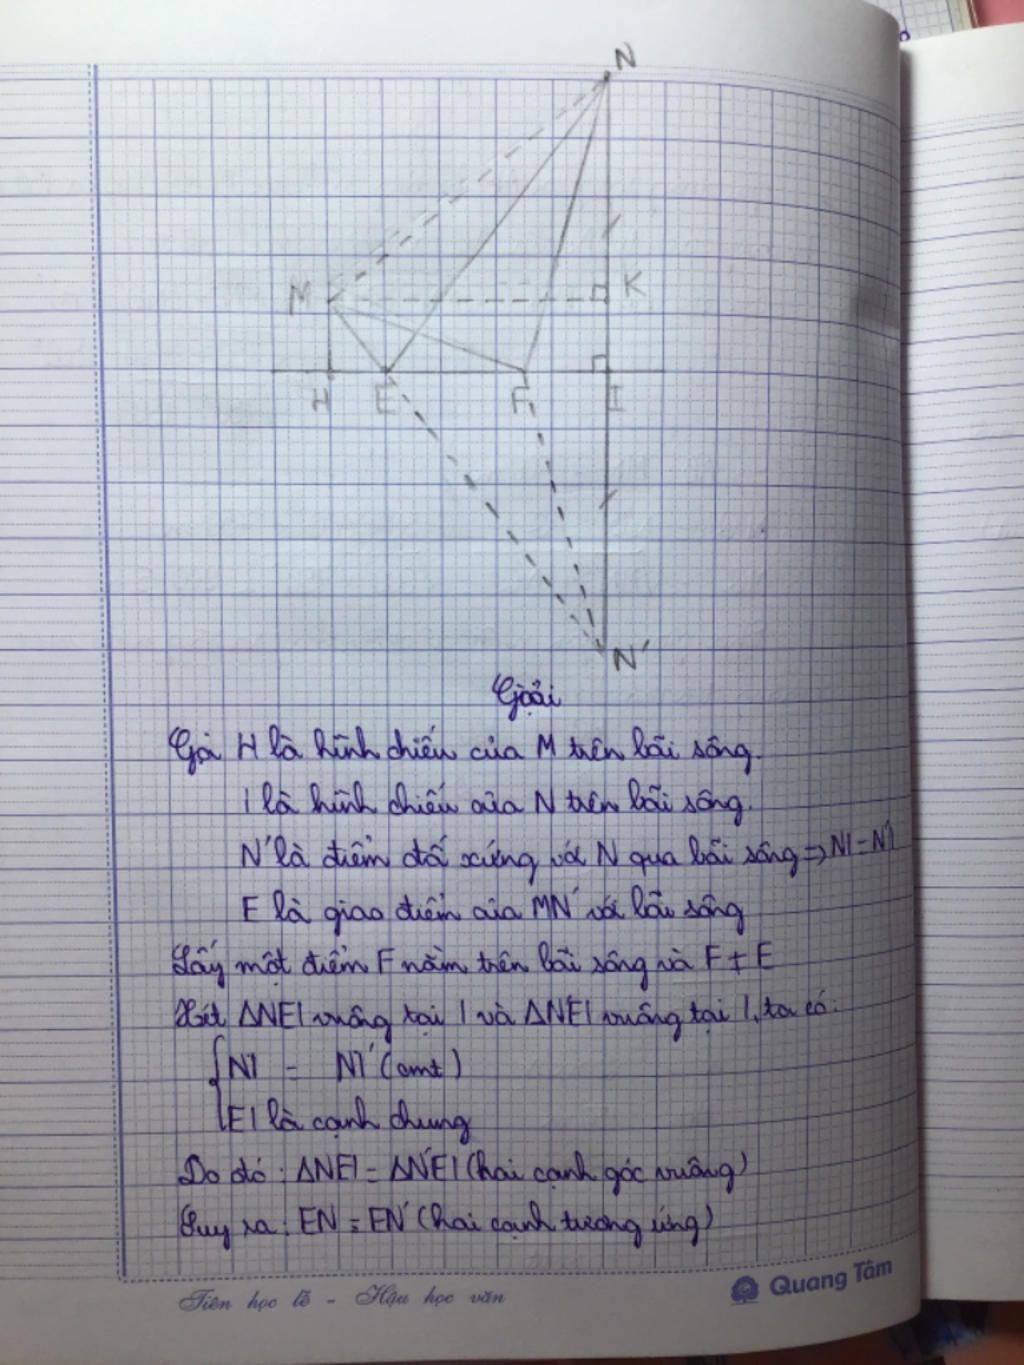 N
M K
H E F I
N'
Giải
Gọi H là hình chiếu của M trên bãi sông.
I là hình chiếu của N trên bãi sông.
N' là điểm đối xứng với N qua bãi sông => NI = N'I
E là giao điểm của MN' với bãi sông
Lấy một điểm F nằm trên bãi sông và F ≠ E
Xét ΔNEI vuông tại I và ΔN'EI vuông tại I, ta có:
{ NI = N'I (cmt)
EI là cạnh chung
Do đó: ΔNEI = ΔN'EI (hai cạnh góc vuông)
Suy ra: EN = EN' (hai cạnh tương ứng)
Tiên học lễ - Hậu học văn
Quang Tâm